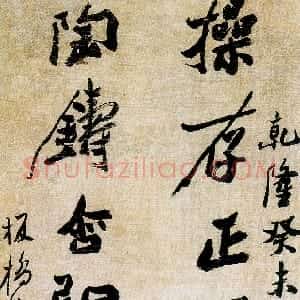 乾隆癸未
操存正
陶鑄含
板橋
ShufaZiliao.COM